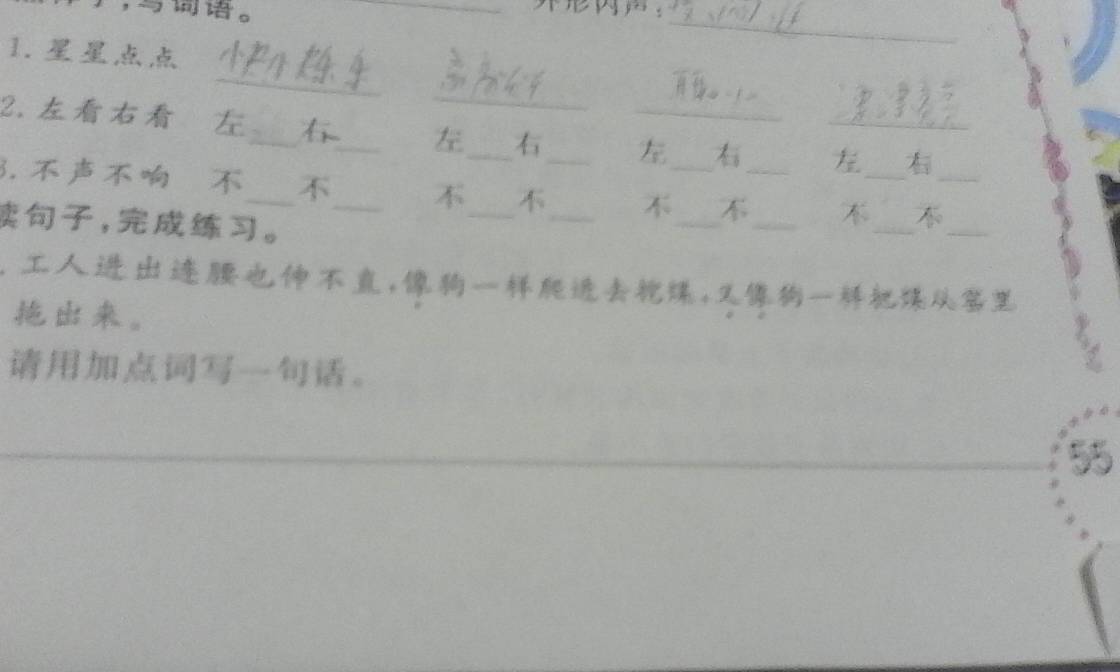 写词语。
外形内声：
1. 星星点点
2. 左看右看 左___右___ 左___右___ 左___右___ 左___右___
3. 不声不响 不___不___ 不___不___ 不___不___ 不___不___
读句子，完成练习。
. 工人进出连腰也伸不直，像狗一样爬进去挖煤，又像狗一样把煤从窑里
拖出来。
请用加点词写一句话。
55